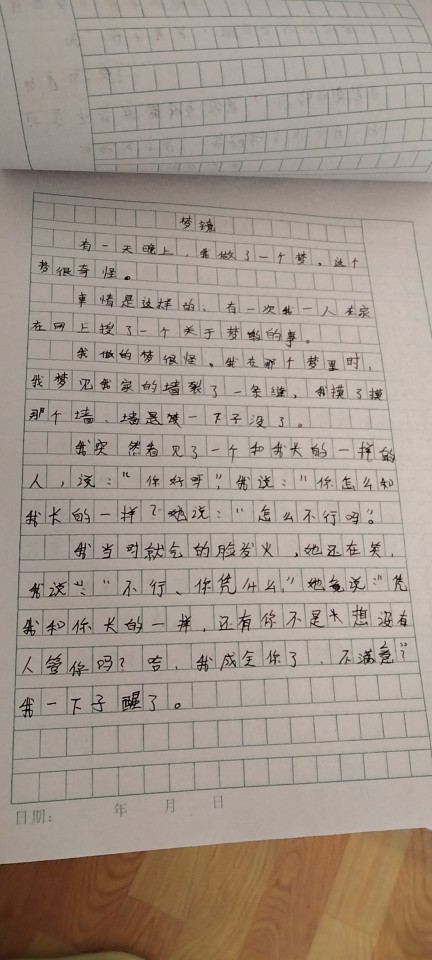 梦镜
有一天晚上，我做了一个梦。这个
梦很奇怪。
事情是这样的：有一次我一人在家
在网上搜了一个关于梦的事。
我做的梦很怪。我在那个梦里时，
我梦见我家的墙裂了一条缝，我摸了摸
那个墙，墙是一下子没了。
我突然看见了一个和我长的一样的
人，说：“你好呀”，我说：“你怎么和
我长的一样？”她说：“怎么不行吗”。
我当时就气的脸发火，她还在笑，
我说：“不行、你凭什么，”她说：“凭
我和你长的一样，还有你不是想没有
人管你吗？哈，我成全你了，不满意？”
我一下子醒了。
日期： 年 月 日